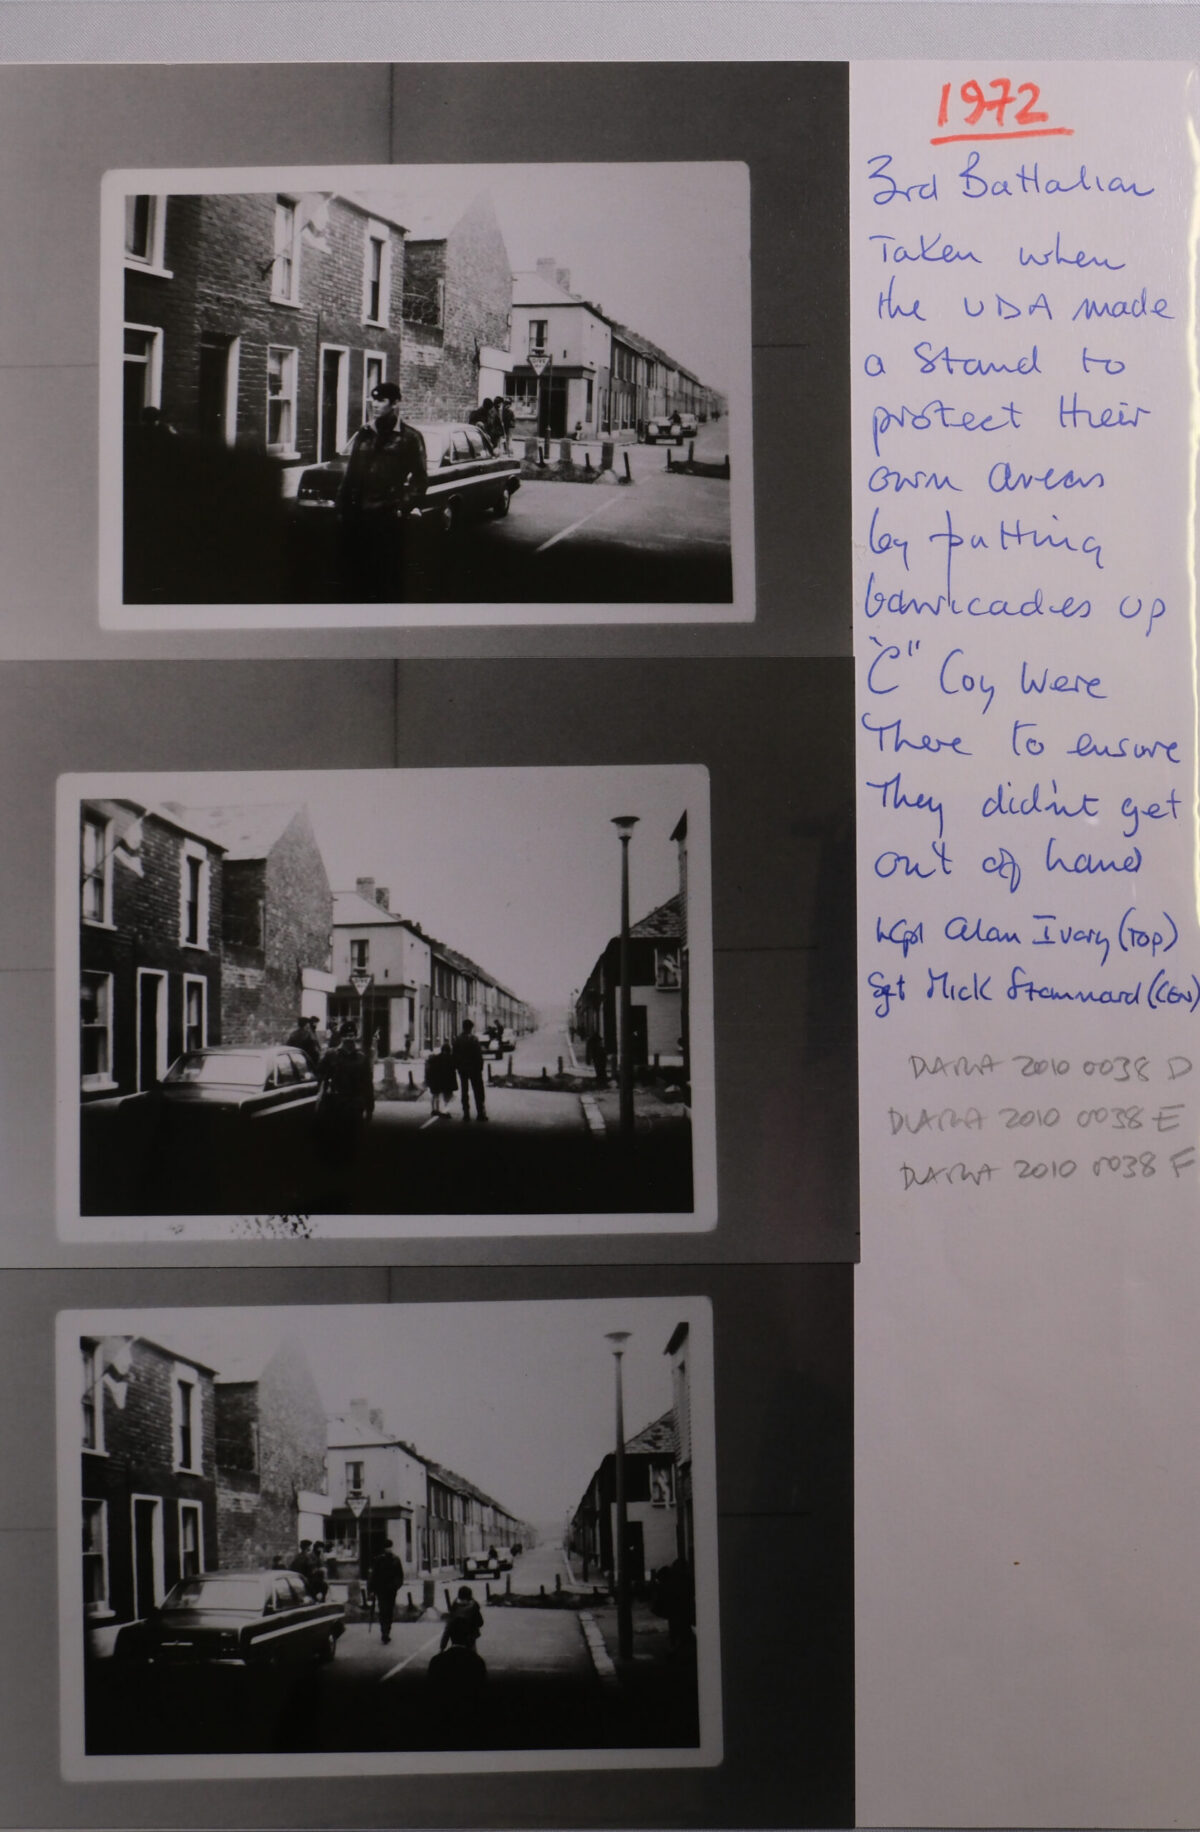 1972
3rd Battalion
Taken when
the UDA made
a Stand to
protect their
own areas
by putting
barricades up
"C" Coy Were
There to ensure
They didn't get
out of hand
LCpl Alan Ivory (TOP)
Sgt Mick Stannard (CEN)
2010 0038 D
2010 0038 E
2010 0038 F